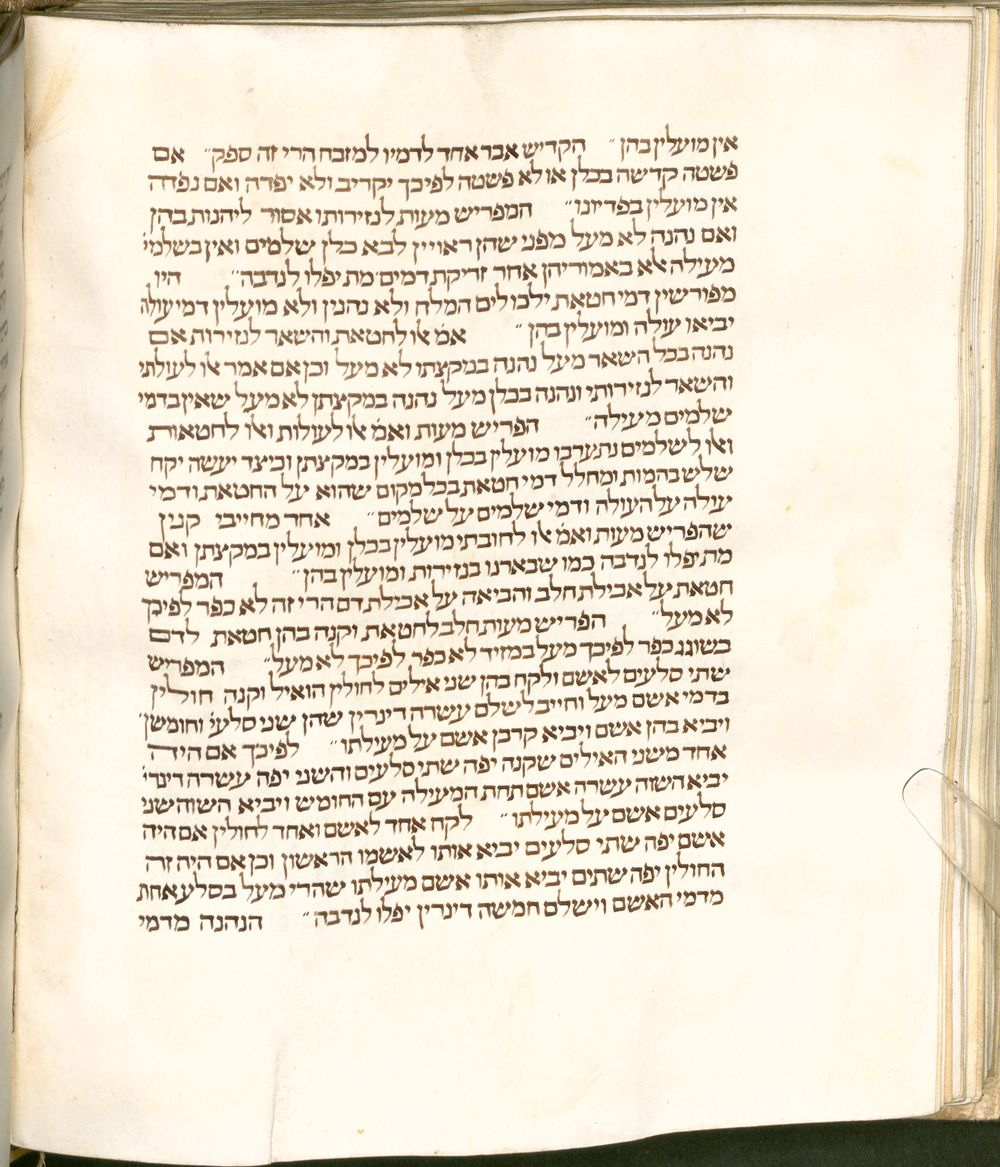 אין מועלין בהן״ הקדיש אבר אחד לדמיו למזבח הרי זה ספק״ אם
פשטה קדשה בכלן או לא פשטה לפיכך יקריב ולא יפדה ואם נפדה
אין מועלין בפדיונו״ המפריש מעות לנזירותו אסור ליהנות בהן
ואם נהנה לא מעל מפני שהן ראויין לבא כלן שלמים ואין בשלמי׳
מעילה אלא באמוריהן אחר זריקת דמים מת יפלו לנדבה״ היו
מפורשין דמי חטאת ילכו לים המלח ולא נהנין ולא מועלין דמי עולה
יביאו עולה ומועלין בהן״ אמ׳ אלו לחטאת והשאר לנזירות אם
נהנה בכל השאר מעל נהנה במקצתו לא מעל וכן אם אמר אלו לעולתי
והשאר לנזירותי ונהנה בכלן מעל נהנה במקצתן לא מעל שאין בדמי
שלמים מעילה״ הפריש מעות ואמ׳ אלו לעולות ואלו לחטאות
ואלו לשלמים נתערבו מועלין בכלן ומועלין במקצתן וכיצד יעשה יקח
שלש בהמות ומחלל דמי חטאת בכל מקום שהוא על החטאת ודמי
עולה על העולה ודמי שלמים על שלמים״ אחד מחייבי קנין
שהפריש מעות ואמ׳ אלו לחובתי מועלין בכלן ומועלין במקצתן ואם
מת יפלו לנדבה כמו שבארנו בנזירות ומועלין בהן״ המפריש
חטאת על אכילת חלב והביאה על אכילת דם הרי זה לא כפר לפיכך
לא מעל״ הפריש מעות חלב לחטאת וקנה בהן חטאת לדם
בשוגג כפר לפיכך מעל במזיד לא כפר לפיכך לא מעל״ המפריש
שתי סלעים לאשם ולקח בהן שני אילים לחולין הואיל וקנה חולין
בדמי אשם מעל וחייב לשלם עשרה דינרין שהן שני סלעי׳ וחומשן
ויביא בהן אשם ויביא קרבן אשם על מעילתו״ לפיכך אם היה
אחד משני האילים שקנה יפה שתי סלעים והשני יפה עשרה דינרי׳
יביא השוה עשרה אשם תחת המעילה עם החומש ויביא השוה שני
סלעים אשם על מעילתו״ לקח אחד לאשם ואחד לחולין אם היה
אשם יפה שתי סלעים יביא אותו לאשמו הראשון וכן אם היה זה
החולין יפה שתים יביא אותו אשם מעילתו שהרי מעל בסלע אחת
מדמי האשם וישלם חמשה דינרין יפלו לנדבה״ הנהנה מדמי